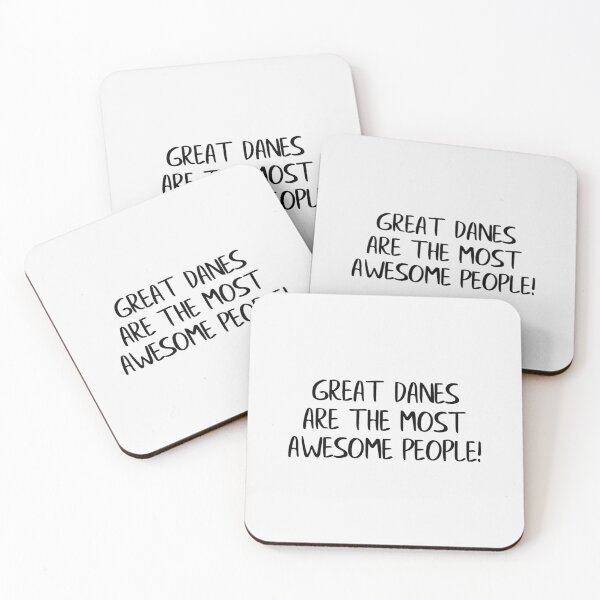 GREAT DANES
ARE THE MOST
OPL
GREAT DANES
ARE THE MOST
AWESOME PEOPLE!
GREAT DANES
ARE THE MOST
AWESOME PEOPLE!
GREAT DANES
ARE THE MOST
AWESOME PEOPLE!